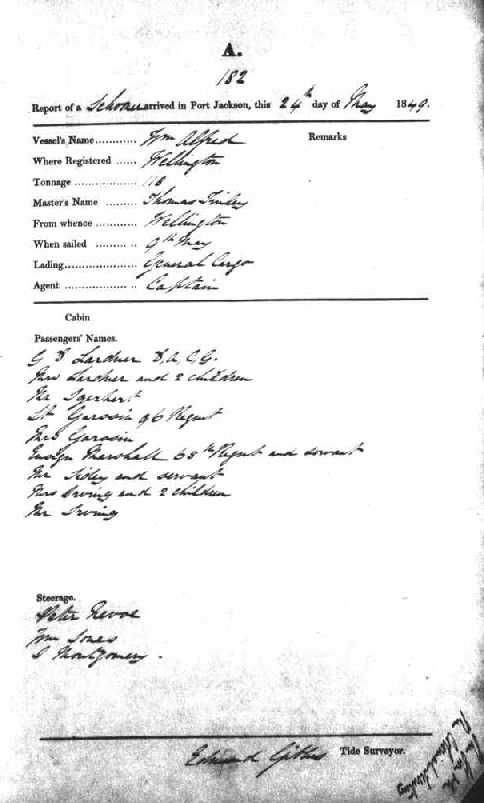 A.
182
Report of a Schooner arrived in Port Jackson, this 24th day of May 1849.
Vessel's Name............ Wm Alfred
Remarks
Where Registered ...... Wellington
Tonnage .................. 118
Master's Name ......... Thomas Finlay
From whence ............ Wellington
When sailed ............ 9th May
Lading...................... General Cargo
Agent ..................... Captain
Cabin
Passengers' Names.
G D Lardner D. A. C. G.
Mrs Lardner and 2 children
Mr
Lt Garossin 96 Regmt
Mrs Garossin
Ensign Marshall 65th Regmt and servant
Mr Sibley and servant
Mrs Irving and 2 children
Mr Irving
Steerage.
Peter Nevoe
Wm Jones
S Montgomery.
Edmund Gibbes Tide Surveyor.